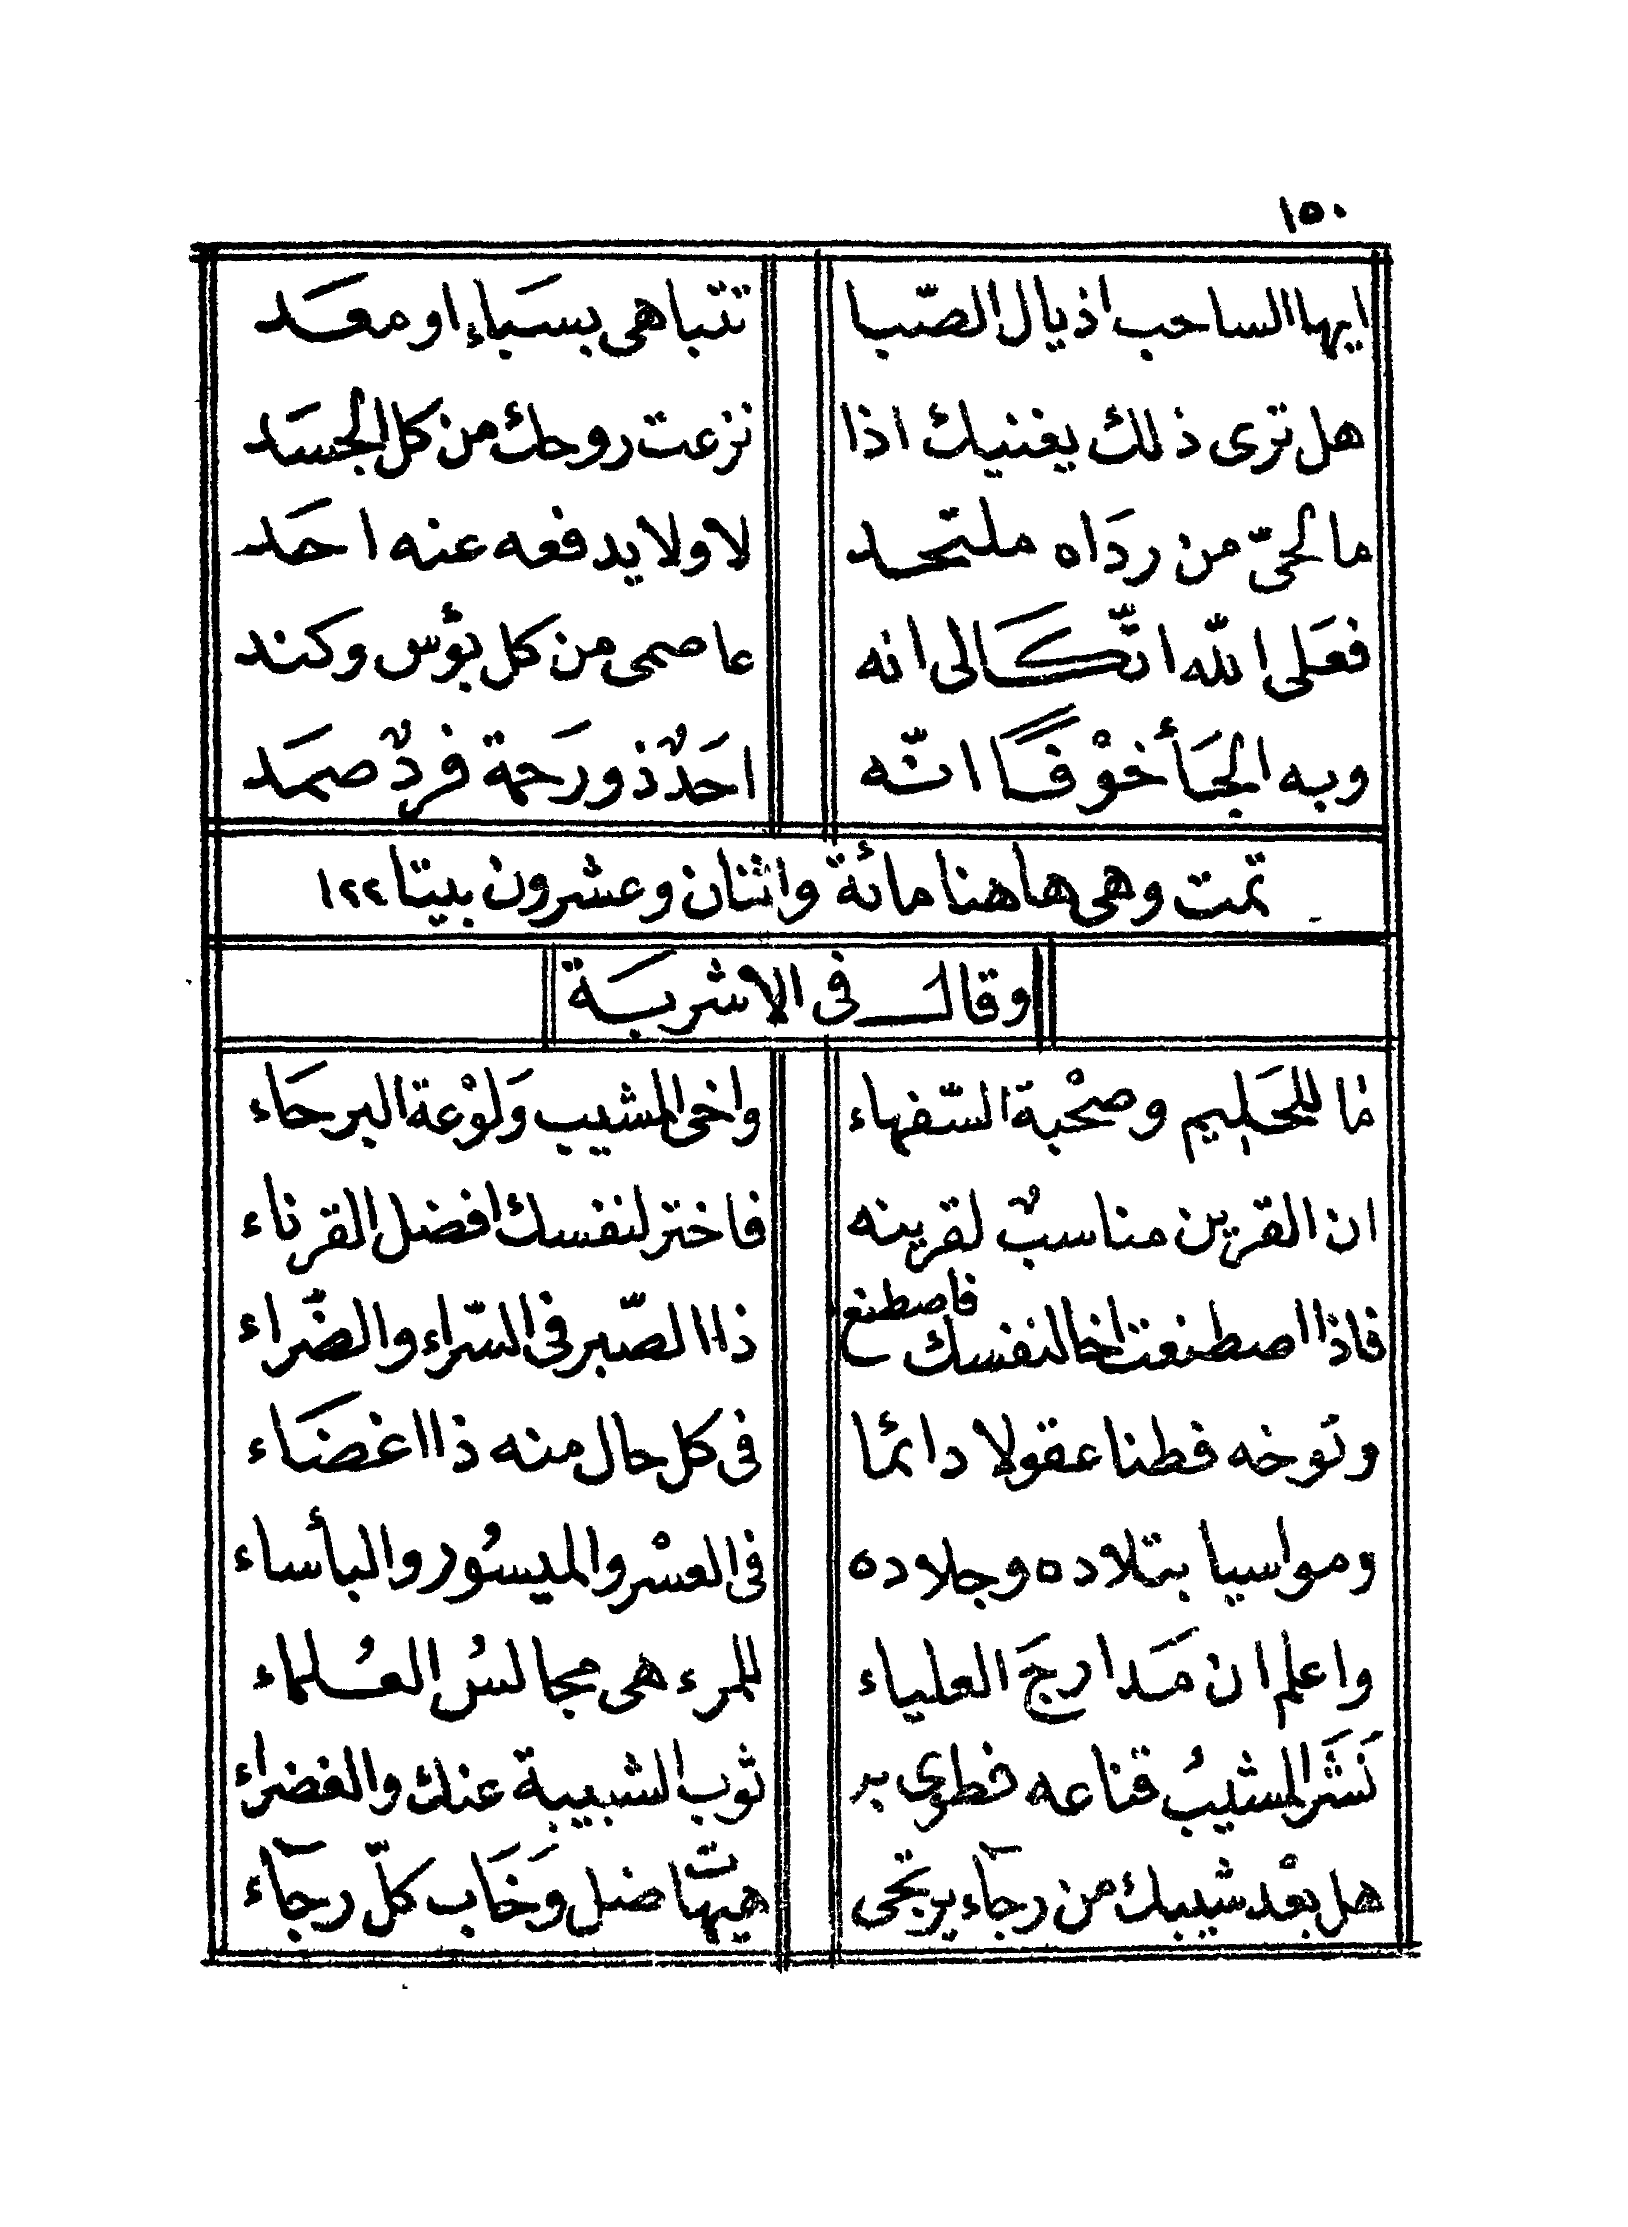 ١٥٠
ايها الساحب اذيال الصّبا تتباهى بسَباءٍ او معَد
هل ترى ذلك يغنيك اذا نزعت روحك من كل الجسَد
ما لحىّ من ردَاه ملتحد لا ولا يدفعه عنه احَد
فعَلى الله اتّكَالى انه عاصمى من كل بؤس وكند
وبه الجَأ خوْفًا انّه احَدٌ ذو رَحمة فردٌ صمَد
تمت وهى هاهنا مائة واثنان وعشرون بيتا ١٢٢
وقال فى الاشربَة
ما للحَليم وصحْبة السّفهاء واخى المشيب وَلوْعة البرحَاء
ان القرين مناسبٌ لقرينه فاختر لنفسك افضل القرناء
فاذا اصطنعت اخا لنفسك فاصطنع ذا الصّبر فى السّراء والضّراء
وتوخه فطنا عقولا دائما فى كل حال منه ذا اغضَاء
ومواسيا بتلاده وجلاده فى العسْر والميسُور والبأساء
واعلم ان مَدارجَ العلياء للمرء هى مجالسُ العُلماء
نَشَر المشيبُ قناعه فطوى بر ثوب الشبيبة عنك والغضراء
هل بعْد شيبك من رجآء يرتجى هيهات ضل وَخَاب كلّ رجآء